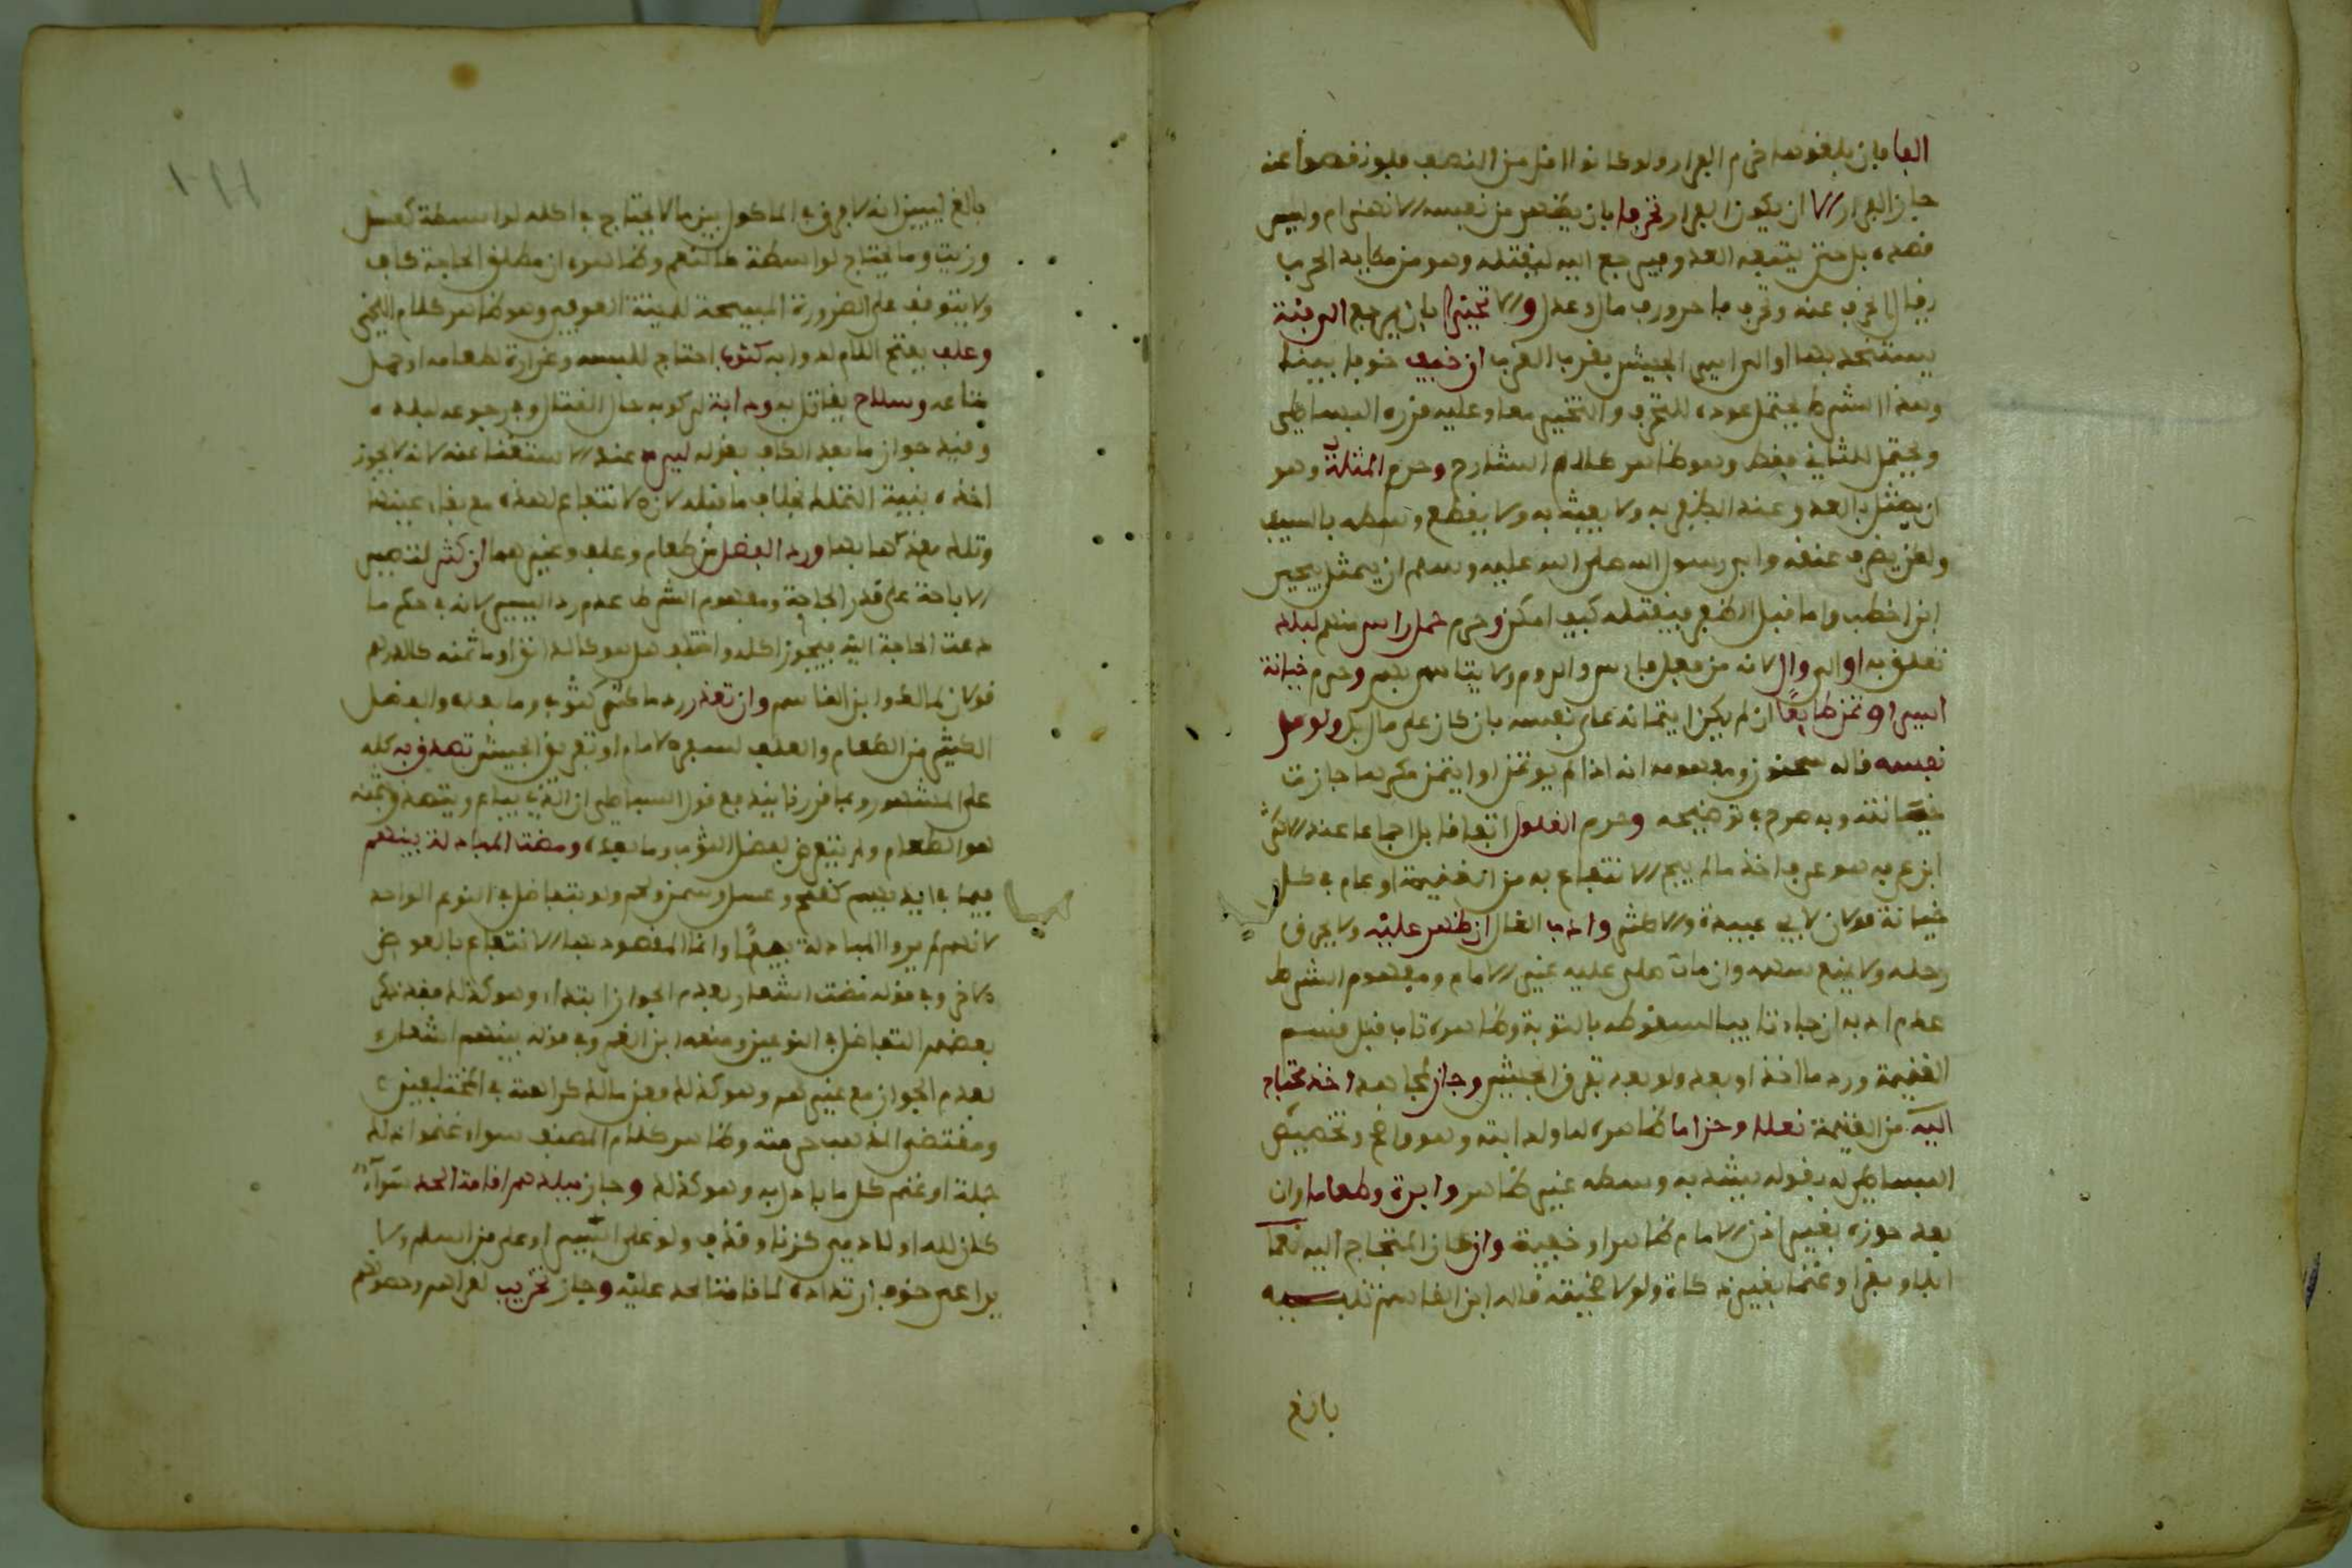 الفا فان بلغوها حرم الفرار ولو كانوا اقل من النصف فلو نقصوا عنه
جاز الفرار الا ان يكون الفرار تحرفا بان يظهر من نفسه الانهزام وليس
قصده بل حتى يتبعه العدو فيرجع اليه ليقتله وهو من مكايد الحرب
يقال انحرف عنه وتحرف واحرورف مال وعدل والا تحيزا بان يرجع الى فئة
يستنجد بها او الى امير الجيش بقرب القرب ان خيف خوفا بينا
وهذا الشرط يحتمل عوده للتحرف والتحيز معا وعليه قرره البساطي
ويحتمل للثاني فقط وهو ظاهر كلام الشارح وحرم المثلة وهو
ان يمثل بالعدو عند الظفر به ولا يعبث به ولا يقطع وسطه بالسيف
ولكن يضرب عنقه وابى رسول الله صلى الله عليه وسلم ان يمثل بحيي
ابن اخطب واما قبل الظفر فيقتله كيف امكن وحرم حمل راس منهم لبلد
تعلق به او الى وال لانه من فعل فارس والروم ولا يتاسى بهم وحرم خيانة
اسير اوتمن طايعا ان لم يكن ايتمانه على نفسه بان كان على مال بل ولو على
نفسه قاله سحنون ومفهومه انه اذا لم يوتمن او ايتمن مكرها جازت
خيانته وبه صرح في توضيحه وحرم الغلول اتفاقا بل اجماعا عند الاكثر
ابن عرفه هو عرفا اخذ ما لم يبح الانتفاع به من الغنيمة او عام في كل
خيانة قولان لابي عبيدة والاكثر وادب الغال ان ظهر عليه ولا يحرق
رحله ولا يمنع سهمه وان مات صلى عليه غير الامام ومفهوم الشرط
عدم ادبه ان جاء تايبا لسقوطه بالتوبة وظاهره تاب قبل قسم
الغنيمة ورد ما اخذ او بعد ولو بعد تفرق الجيش وجاز لمجاهد اخذ محتاج
اليه من الغنيمة نعلا وحزاما ظاهره له او لدابته وهو واضح وتخصيص
البساطي له بقوله يشد به وسطه غير ظاهر وابرة وطعاما وان
بعد حوزه بغير اذن الامام ظاهرا وخفية وان كان المحتاج اليه نعما
ابلا وبقرا وغنما بغير ذكاة ولو لا خفيفة قاله ابن القاسم تنبيه
بالغ
بالغ ليبين انه لا فرق في الماكول بين ما لا يحتاج في اكله لواسطة كعسل
وزيت وما يحتاج لواسطة كالنعم وظاهره ان مطلق الحاجة كاف
ولا يتوقف على الضرورة المبيحة للميتة الفوقية وهو ظاهر كلام اللخمي
وعلف بفتح اللام لدوابه كثوب احتاج للبسه وغرارة لطعامه او حمل
متاعه وسلاح يقاتل به ودابة لركوبه حال القتال وفي رجوعه لبلده
وقيد جواز ما بعد الكاف بقوله ليرد عند الاستغنا عنه لانه لا يجوز
اخذه بنية التملك بخلاف ما قبله لان الانتفاع بهذه مع بقاء عينها
وتلك بعد ذهابها ورد الفضل من طعام وعلف وغيرهما ان كثر لتقصير
الاباحة على قدر الحاجة ومفهوم الشرط عدم رد اليسير لانه في حكم ما
دعت الحاجة اليه فيجوز اكله واختلف هل هو كالدانق او ما ثمنه كالدرهم
قولان لمالك وابن القاسم وان تعذر رد ما كثر كثوب وما بعده والفضل
الكثير من الطعام والعلف لسفر الامام او تفريق الجيش تصدق به كله
على المشهور وبما قررنا يندفع قول البساطي ان الذي يباع ويتصدق بثمنه
هو الطعام ولم يتعرض لفضل الثوب وما بعده ومضت المبادلة بينهم
فيما في ايديهم كقمح وعسل وسمن ولحم ولو بتفاضل في النوع الواحد
لانهم لم يروا المبادلة بيعا وانما المقصود بها الانتفاع بالعوض
الاخر وفي قوله مضت اشعار بعدم الجواز ابتداء وهو كذلك فقد ذكر
بعضهم التفاضل في النوعين ومنعه ابن القـ وفي قوله بينهم اشعار
بعدم الجواز مع غيرهم وهو كذلك فعن مالك كراهته في المختلفين
ومقتضى المذهب حرمته وظاهر كلام المصنف سواء غنموا ذلك
جملة او غنم كل ما بادل به وهو كذلك وجاز ببلدهم اقامة الحد سواء
كان لله او لادمي كزنا وقذف ولو على السير او على من اسلم ولا
يراعى خوف ارتداده لما قامنا الحد عليه وجاز تخريب لقراهم وحصونهم